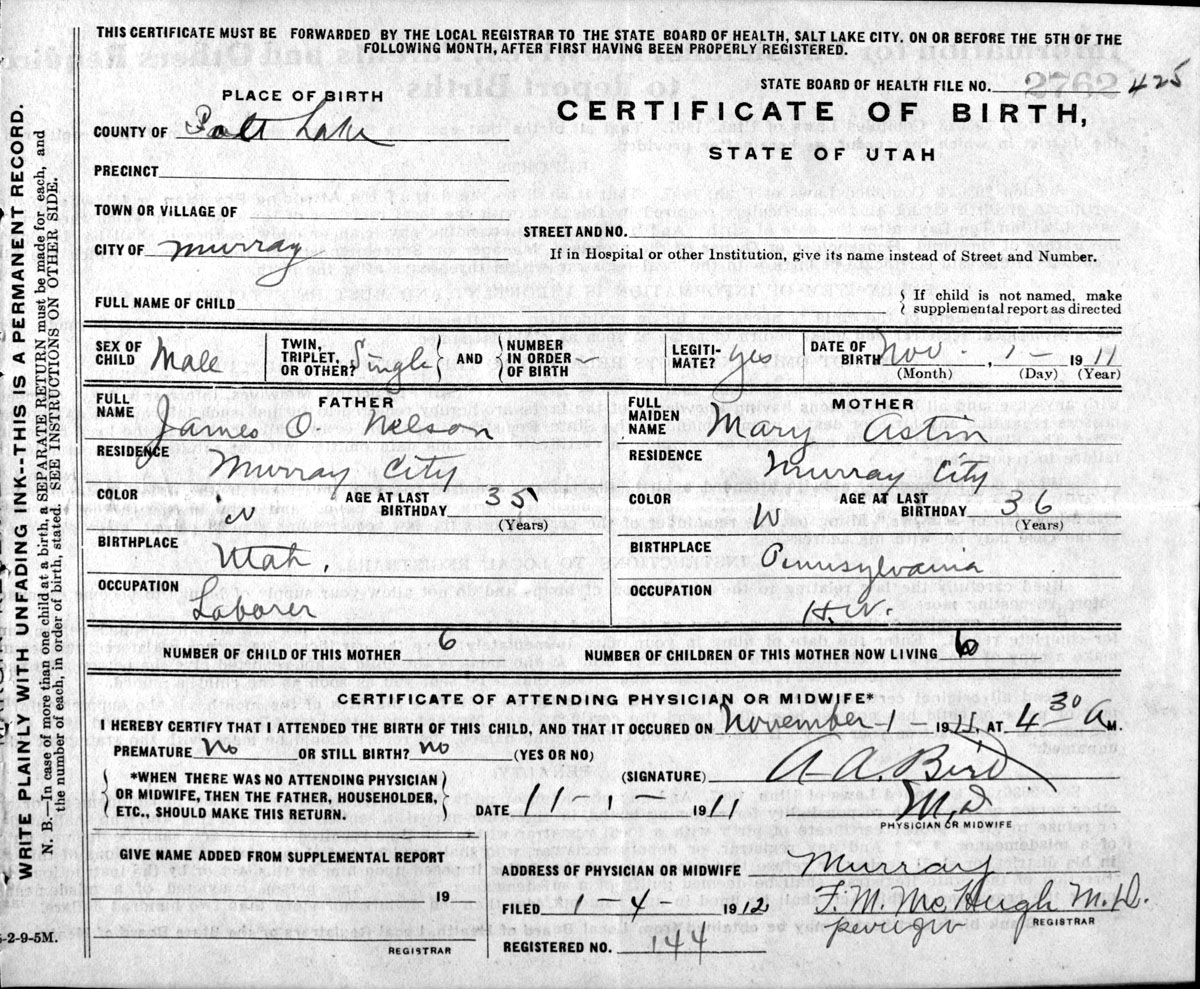 THIS CERTIFICATE MUST BE FORWARDED BY THE LOCAL REGISTRAR TO THE STATE BOARD OF HEALTH, SALT LAKE CITY, ON OR BEFORE THE 5TH OF THE
FOLLOWING MONTH, AFTER FIRST HAVING BEEN PROPERLY REGISTERED.
STATE BOARD OF HEALTH FILE NO. 2762 425
PLACE OF BIRTH
CERTIFICATE OF BIRTH,
STATE OF UTAH
COUNTY OF Salt Lake
PRECINCT
TOWN OR VILLAGE OF
STREET AND NO.
CITY OF Murray
If in Hospital or other Institution, give its name instead of Street and Number.
FULL NAME OF CHILD
{ If child is not named, make
supplemental report as directed
SEX OF CHILD Male
TWIN, TRIPLET, OR OTHER? Single } AND { NUMBER IN ORDER OF BIRTH
LEGITI-MATE? yes
DATE OF BIRTH Nov. , 1 - 1911
(Month) (Day) (Year)
FATHER
FULL NAME James O. Nelson
RESIDENCE Murray City
COLOR W
AGE AT LAST BIRTHDAY 35
(Years)
BIRTHPLACE Utah.
OCCUPATION Laborer
MOTHER
FULL MAIDEN NAME Mary Astin
RESIDENCE Murray City
COLOR W
AGE AT LAST BIRTHDAY 36
(Years)
BIRTHPLACE Pennsylvania
OCCUPATION H.W.
NUMBER OF CHILD OF THIS MOTHER 6 NUMBER OF CHILDREN OF THIS MOTHER NOW LIVING 6
CERTIFICATE OF ATTENDING PHYSICIAN OR MIDWIFE*
I HEREBY CERTIFY THAT I ATTENDED THE BIRTH OF THIS CHILD, AND THAT IT OCCURED ON November-1- 1911, AT 4 30 A M.
PREMATURE No OR STILL BIRTH? no (YES OR NO)
(SIGNATURE) A A. Bird
M,D
PHYSICIAN OR MIDWIFE
{ *WHEN THERE WAS NO ATTENDING PHYSICIAN
OR MIDWIFE, THEN THE FATHER, HOUSEHOLDER,
ETC., SHOULD MAKE THIS RETURN. }
DATE 11-1- 1911
GIVE NAME ADDED FROM SUPPLEMENTAL REPORT
19
REGISTRAR
ADDRESS OF PHYSICIAN OR MIDWIFE Murray
FILED 1 4 - 1912
F. M. McHugh M.D.
REGISTRAR
REGISTERED NO. 144
WRITE PLAINLY WITH UNFADING INK--THIS IS A PERMANENT RECORD.
N. B.—In case of more than one child at a birth, a SEPARATE RETURN must be made for each, and
the number of each, in order of birth, stated. SEE INSTRUCTIONS ON OTHER SIDE.
-2-9-5M.